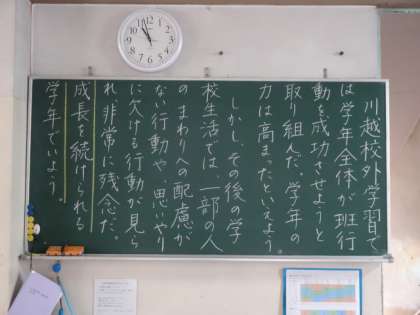 川越校外学習で
は学年全体が班行
動を成功させようと
取り組んだ。学年の
力は高まったといえよう
。
しかし、その後の学
校生活では、一部の人
のまわりへの配慮が
ない行動や、思いやり
に欠ける行動が見ら
れ、非常に残念だ。
成長を続けられる
学年でいよう。